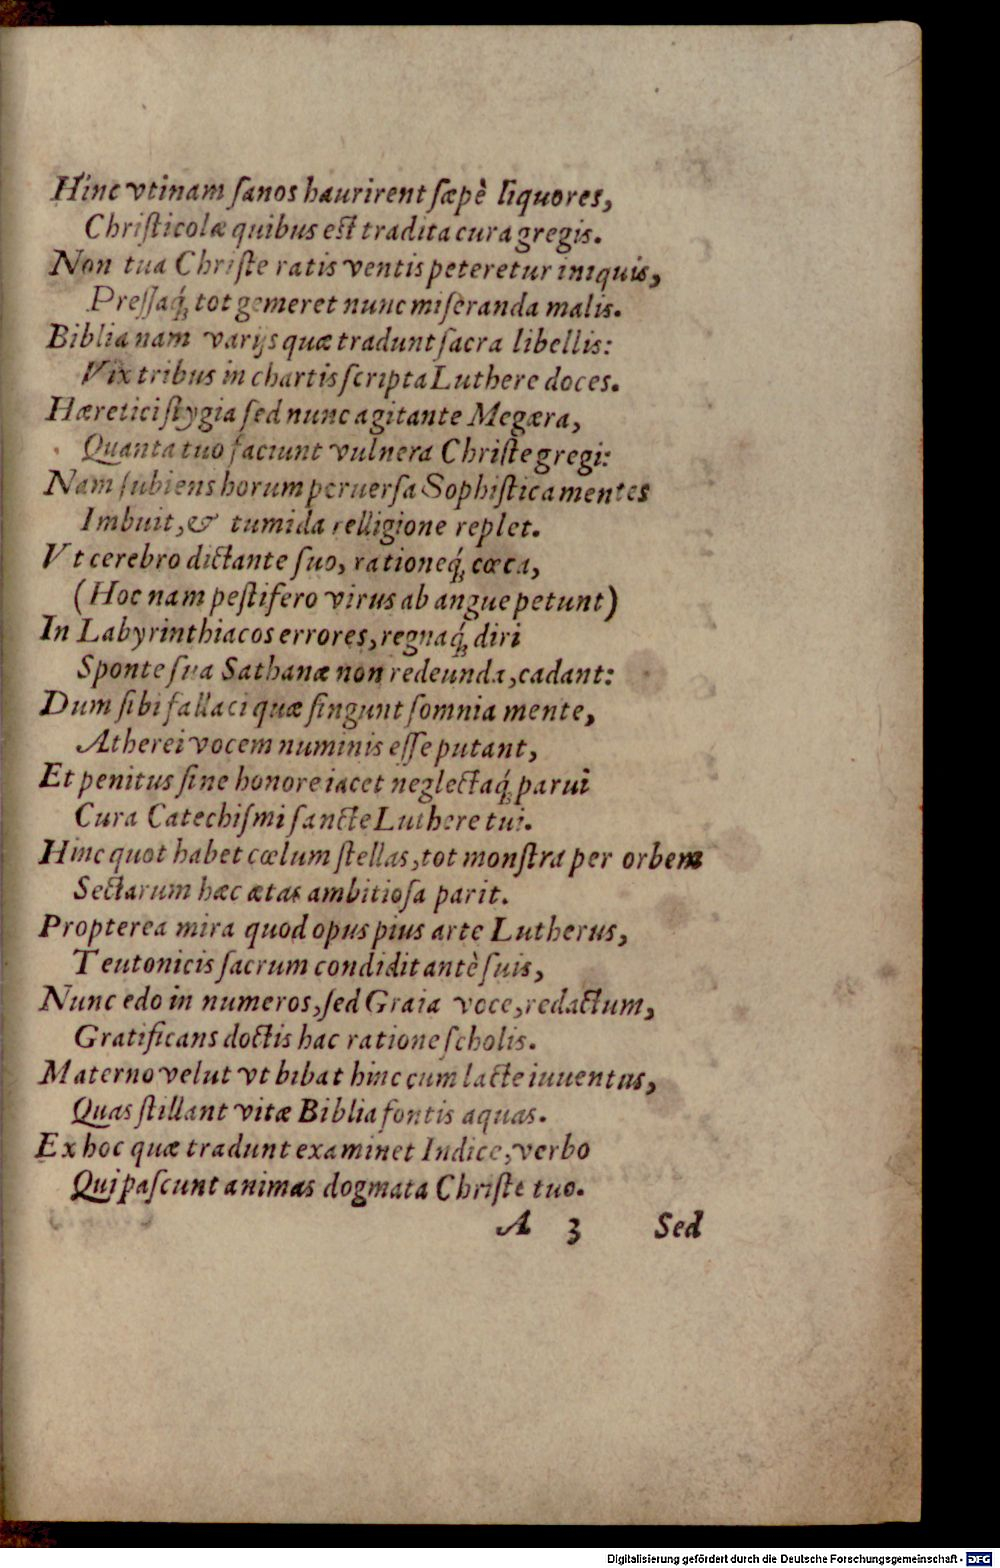 Hinc vtinam ſanos haurirent ſæpè liquores,
Chriſticolæ quibus eſt tradita cura gregis.
Non tua Chriſte ratis ventis peteretur iniquis,
Preſſaq́; tot gemeret nunc miſeranda malis.
Biblia nam varijs quæ tradunt ſacra libellis:
Vix tribus in chartis ſcripta Luthere doces.
Hæretici ſtygia ſed nunc agitante Megæra,
Quanta tuo faciunt vulnera Chriſte gregi:
Nam ſubiens horum peruerſa Sophiſtica mentes
Imbuit, & tumida relligione replet.
Vt cerebro dictante ſuo, rationeq́; cœca,
(Hoc nam peſtifero virus ab angue petunt)
In Labyrinthiacos errores, regnaq́; diri
Sponte ſua Sathanæ non redeunda, cadant:
Dum ſibi fallaci quæ fingunt ſomnia mente,
Atherei vocem numinis eſſe putant,
Et penitus ſine honore iacet neglectaq́; parui
Cura Catechiſmi ſancte Luthere tui.
Hinc quot habet cœlum ſtellas, tot monſtra per orbem
Sectarum hæc ætas ambitioſa parit.
Propterea mira quod opus pius arte Lutherus,
Teutonicis ſacrum condidit antè ſuis,
Nunc edo in numeros, ſed Graia voce, redactum,
Gratificans doctis hac ratione ſcholis.
Materno velut vt bibat hinc cum lacte iuuentus,
Quas ſtillant vitæ Biblia fontis aquas.
Ex hoc quæ tradunt examinet Indice, verbo
Qui paſcunt animas dogmata Chriſte tuo.
A 3 Sed
Digitalisierung gefördert durch die Deutsche Forschungsgemeinschaft - DFG